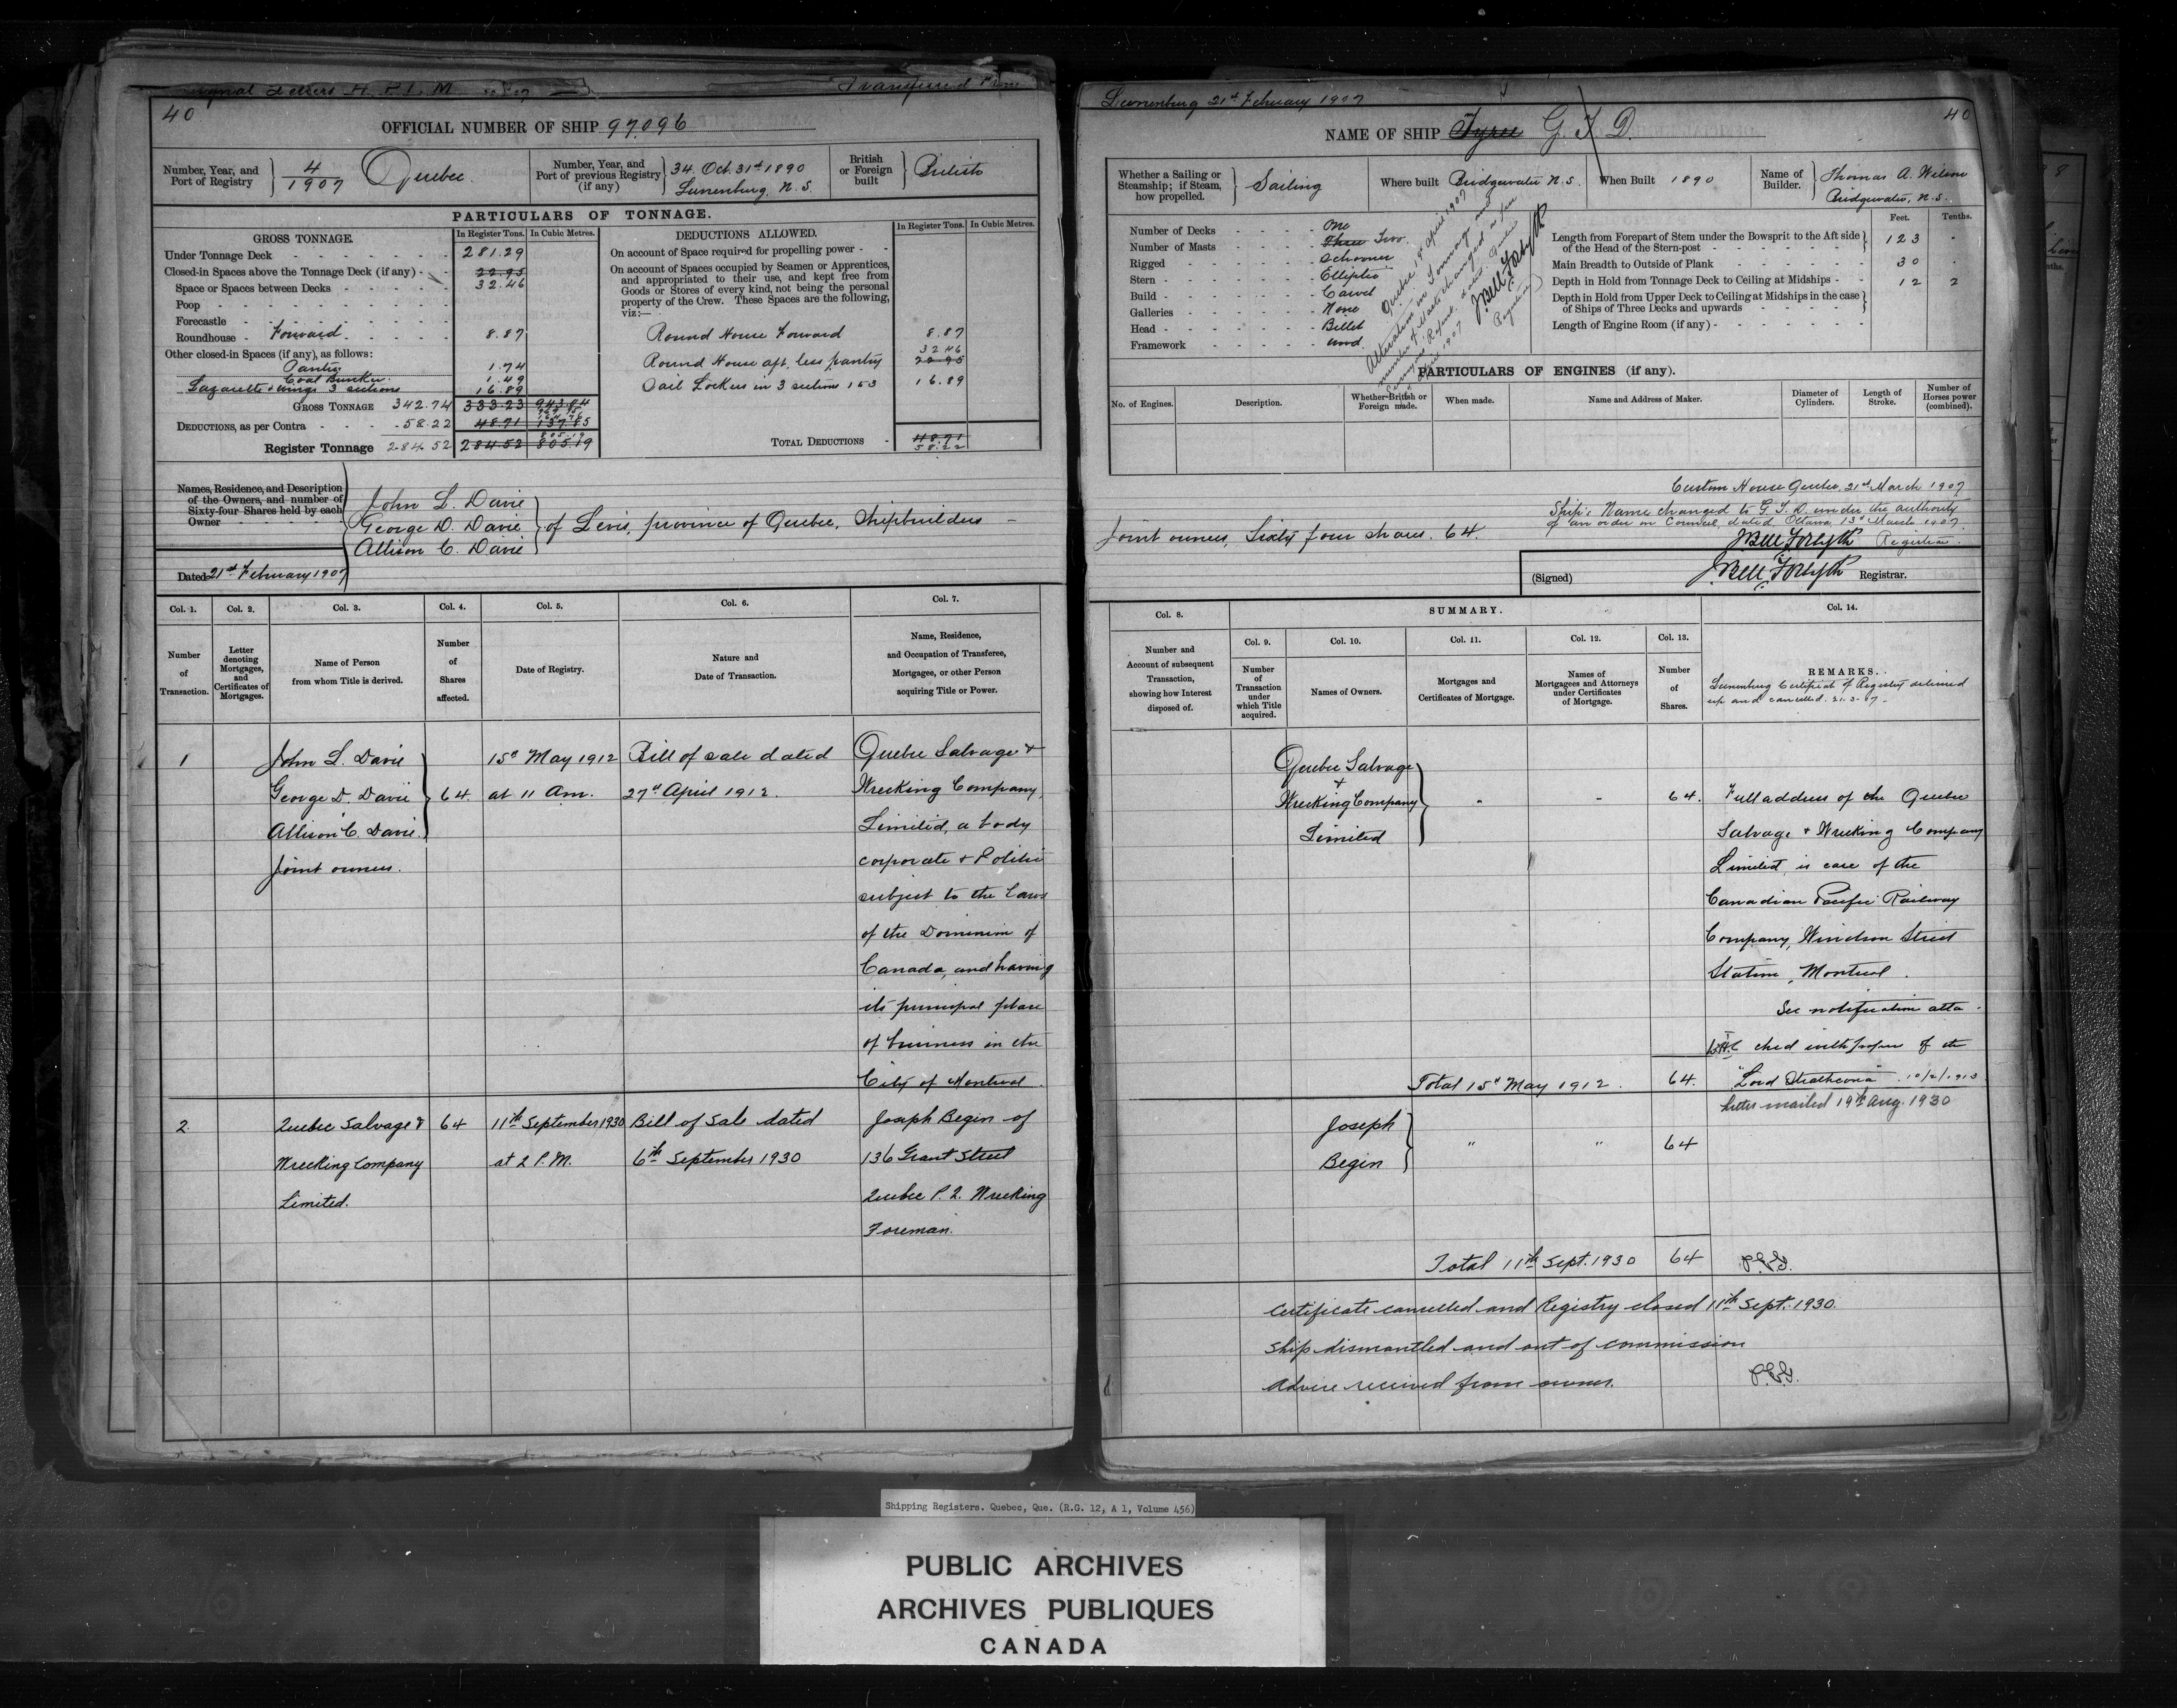 Signal Letters
Transferred from
40
OFFICIAL NUMBER OF SHIP 97.096
Number, Year, and Port of Registry 4/1907 Quebec.
Number, Year, and Port of previous Registry (if any) 34. Oct. 31st 1890 Lunenburg, N.S.
British or Foreign built British
PARTICULARS OF TONNAGE.
GROSS TONNAGE. In Register Tons. In Cubic Metres.
Under Tonnage Deck 281.29
Closed-in Spaces above the Tonnage Deck (if any) - 22.95
Space or Spaces between Decks 32.46
Poop
Forecastle
Roundhouse - Forward 8.87
Other closed-in Spaces (if any), as follows:
Pantry 1.74
Coal Bunker 1.49
Lazarette & wings 3 sections 16.89
GROSS TONNAGE 342.74 333.23 943.04
DEDUCTIONS, as per Contra 58.22 48.71 137.85
Register Tonnage 284.52 284.52 805.19
DEDUCTIONS ALLOWED. In Register Tons. In Cubic Metres.
On account of Space required for propelling power
On account of Spaces occupied by Seamen or Apprentices,
and appropriated to their use, and kept free from
Goods or Stores of every kind, not being the personal
property of the Crew. These Spaces are the following,
viz:—
Round House Forward 8.87
32.46
Round House aft, less pantry 22.95
Sail Lockers in 3 sections 1 & 3 16.89
TOTAL DEDUCTIONS 48.71
58.22
Names, Residence, and Description
of the Owners, and number of
Sixty-four Shares held by each
Owner
John L. Davie
George D. Davie
Allison C. Davie
of Levis, province of Quebec, Shipbuilders
Dated 21st February 1907
Col. 1. Col. 2. Col. 3. Col. 4. Col. 5. Col. 6. Col. 7.
Number of Transaction.
Letter denoting Mortgages, and Certificates of Mortgages.
Name of Person from whom Title is derived.
Number of Shares affected.
Date of Registry.
Nature and Date of Transaction.
Name, Residence, and Occupation of Transferee, Mortgagee, or other Person acquiring Title or Power.
1 John L. Davie 15th May 1912 Bill of sale dated Quebec Salvage &
George D. Davie 64. at 11 Am. 27th April 1912. Wrecking Company,
Allison C. Davie. Limited, a body
Joint owners. corporate & Politic
subject to the Laws
of the Dominion of
Canada, and having
its principal place
of business in the
City of Montreal.
2 Quebec Salvage & 64 11th September 1930 Bill of Sale dated Joseph Begin of
Wrecking Company at 2 P.M. 6th September 1930 136 Grant Street
Limited. Quebec P.Q. Wrecking
Foreman.
Lunenburg 21st February 1907
40
NAME OF SHIP Tyree G. T. D.
Whether a Sailing or Steamship; if Steam, how propelled. Sailing
Where built Bridgewater N.S.
When Built 1890
Name of Builder. Thomas A. Wilson
Bridgewater, N.S.
Number of Decks One
Number of Masts Three Two.
Rigged Schooner
Stern Elliptic
Build Carvel
Galleries None
Head Billet
Framework Wood.
Quebec 19th April 1907
Alteration in Tonnage and
number of Masts changed as per
J Bell Forsyth
Registrar
Feet. Tenths.
Length from Forepart of Stem under the Bowsprit to the Aft side
of the Head of the Stern-post 123
Main Breadth to Outside of Plank 30
Depth in Hold from Tonnage Deck to Ceiling at Midships 12 2
Depth in Hold from Upper Deck to Ceiling at Midships in the case
of Ships of Three Decks and upwards
Length of Engine Room (if any)
PARTICULARS OF ENGINES (if any).
No. of Engines. Description. Whether British or Foreign made. When made. Name and Address of Maker. Diameter of Cylinders. Length of Stroke. Number of Horses power (combined).
Custom House Quebec, 21st March 1907
Ship's Name changed to G. T. D. under the authority
of an order in Council, dated Ottawa, 13th March 1907.
J Bell Forsyth Registrar.
Joint owners, Sixty four shares. 64.
(Signed) J. Bell Forsyth Registrar.
Col. 8. SUMMARY. Col. 14.
Col. 9. Col. 10. Col. 11. Col. 12. Col. 13.
Number and Account of subsequent Transaction, showing how Interest disposed of.
Number of Transaction under which Title acquired.
Names of Owners.
Mortgages and Certificates of Mortgage.
Names of Mortgagees and Attorneys under Certificates of Mortgage.
Number of Shares.
REMARKS.
Lunenburg Certificate of Registry delivered
up and cancelled. 21.3.07
Quebec Salvage
& Wrecking Company - - 64. Full address of the Quebec
Limited Salvage & Wrecking Company
Limited, is care of the
Canadian Pacific Railway
Company, Windsor Street
Station, Montreal.
See notification atta-
ched with papers of the
Total 15th May 1912. 64. "Lord Strathcona". 10/2/1913
Letter mailed 19th Aug. 1930
Joseph
Begin " " 64
Total 11th Sept. 1930 64
Certificate cancelled and Registry closed 11th Sept. 1930.
Ship dismantled and out of commission
Advice received from owner.
Shipping Registers. Quebec, Que. (R.G. 12, A 1, Volume 456)
PUBLIC ARCHIVES
ARCHIVES PUBLIQUES
CANADA